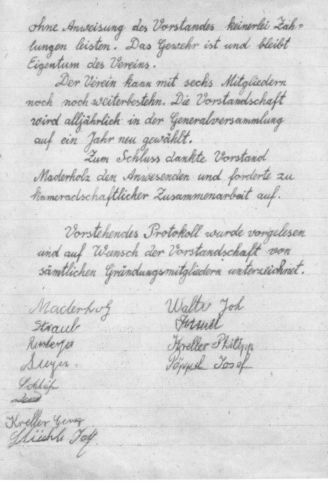 ohne Anweisung des Vorstandes keinerlei Zah-
lungen leisten. Das Gewehr ist und bleibt
Eigentum des Vereins.
Der Verein kann mit sechs Mitgliedern
noch noch weiterbestehn. Die Vorstandschaft
wird alljährlich in der Generalversammlung
auf ein Jahr neu gewählt.
Zum Schluss dankte Vorstand
Maderholz den Anwesenden und forderte zu
kameradschaftlicher Zusammenarbeit auf.
Vorstehendes Protokoll wurde vorgelesen
und auf Wunsch der Vorstandschaft von
sämtlichen Gründungsmitgliedern unterzeichnet.
Maderholz Walter Joh
Straub
Kreller Philipp
Pöppel Josef
Kreller Georg